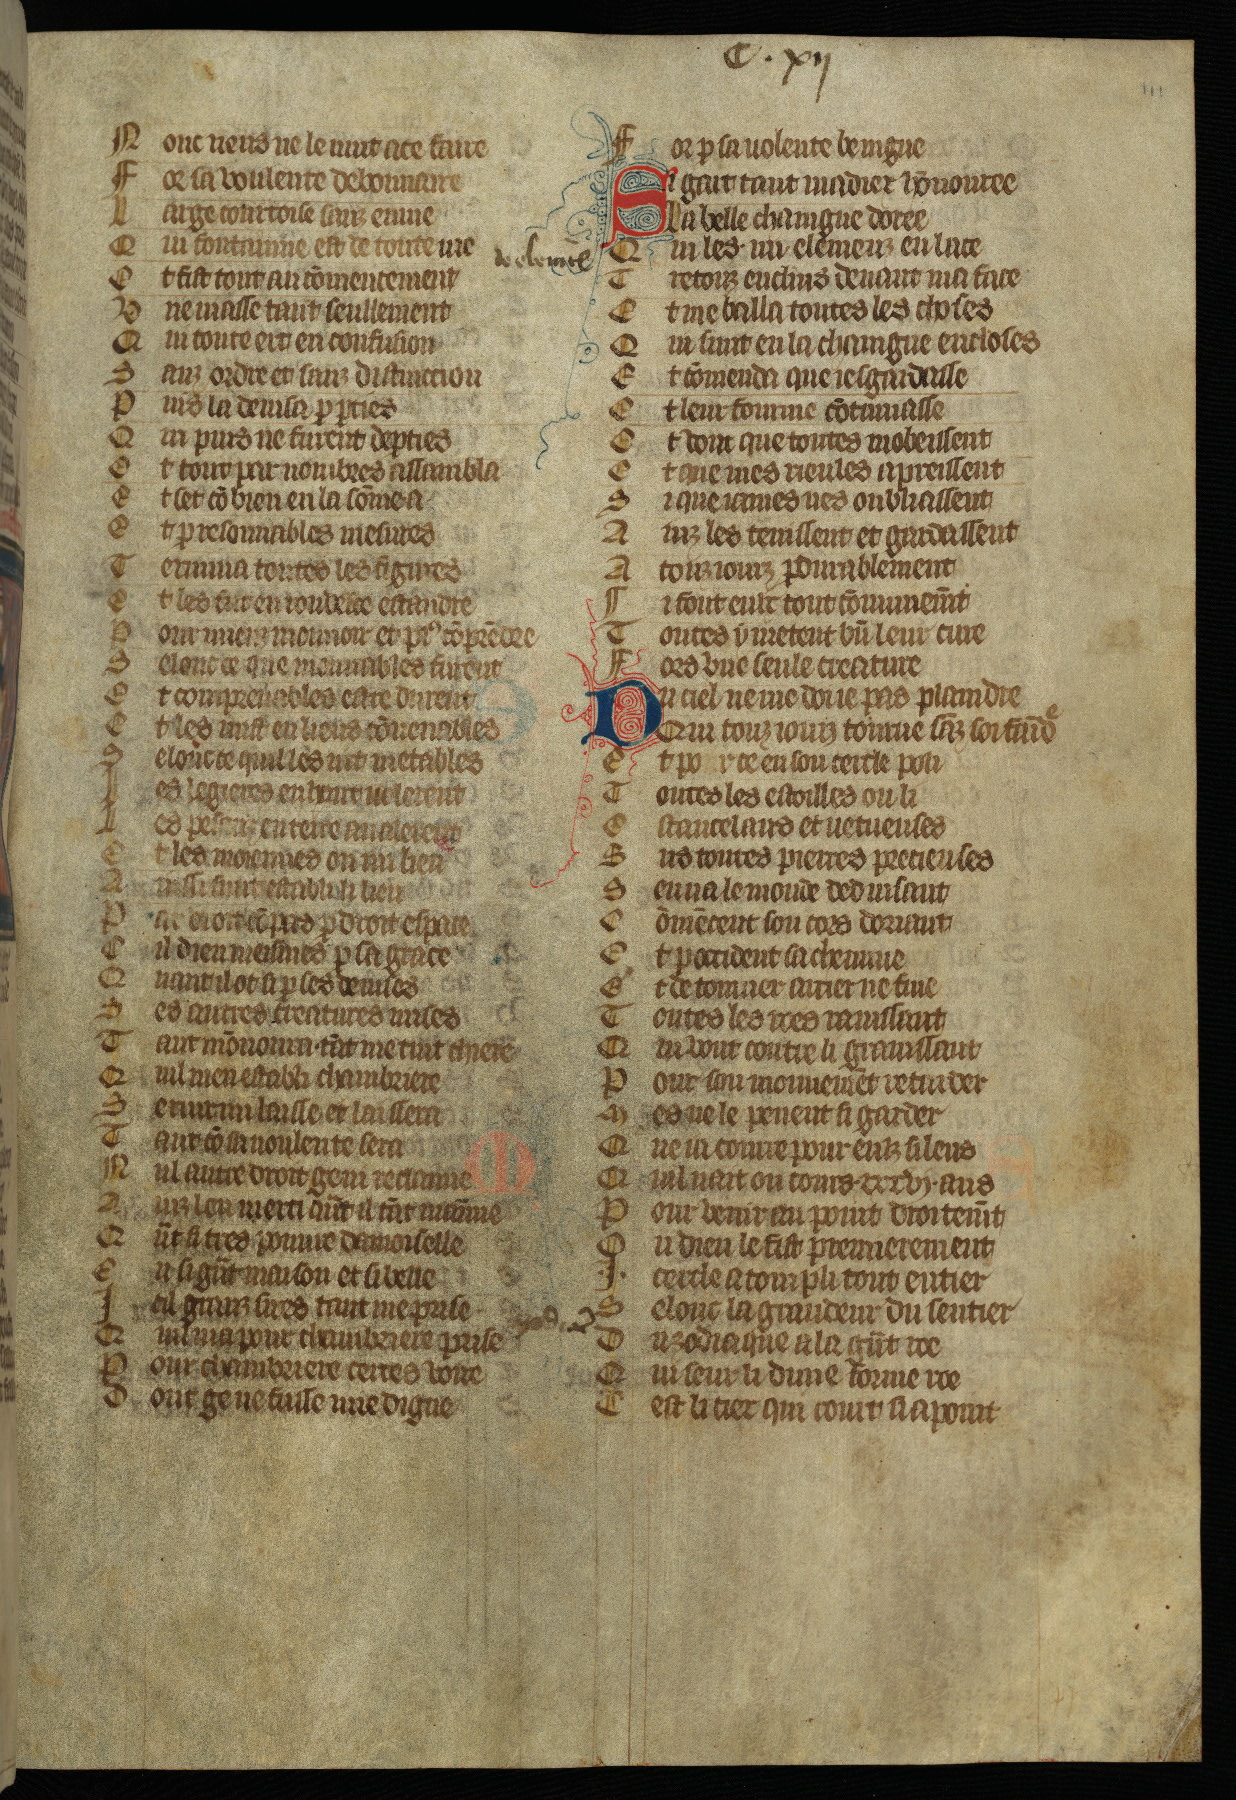 C. xij
111
N onc riens ne le mut a ce faire
F or sa voulente debonnaire
L arge courtoise sanz enuie
Q ui fontainne est de toute vie
E t fist tout au cōmencement
V ne masse tant seullement
Q ui toute ert en confusion
S anz ordre et sanz distinccion
P uis la deuisa p pties
Q ui puis ne furent depties
E t tout par nombres assambla
E t set cō bien en la sōme a
E t p resonnables mesures
T ermina toutes les figures
E t les fist en rondece estandre
P our miex mouuoir et pꝰ cōprēdre
S elonc ce que mouuables furent
E t comprenables estre durent
E t les mist en liens cōuenables
S elonc ce quil les vit metables
L es legieres en haut volerent
L es pesanz en terre aualerent
E t les moiennes ou mi lieu
A insi sunt establi li lieu
P ar droit cōpas p droit espace
C il dieu meismes p sa grace
Q uant il ot si p ses deuises
S es autres creatures mises
T ant mōnoura tāt me tint chiere
Q uil men establi chambriere
S eruir mi laisse et laissera
T ant cō sa voulente sera
N ul autre droit gen i reclaime
A inz len merci qūt il tāt maīme
Q ūt si tres poure damoiselle
E n si gūt maison et si belle
I cil granz sires tant me prise
Q uil ma pour chambriere prise
P our chambriere certes voire
D ont ge ne fusse mie digne
F or p sa volente benigne
S i gart tant ma diex hōnouree
La belle chaingne doree
de elemētꝭ
Q ui les iiii elemenz enlace
T restouz enclins deuant ma face
E t me balla toutes les choses
Q ui sunt en la chaingne encloses
E t cōmenda que ies gardasse
E t leur fourme cōtinuasse
E t vout que toutes mobeissent
E t que mes rieules apreissent
S i que iames nes oubliassent
A inz les tenissent et gardassent
A touz iourz pdurablement
S i font eulz tout cōmunemt̄
T outes y metent bn̄ leur cure
F ors vne seule creature
D u ciel ne me doie pas plaindre
Qui touz iourz tourne sāz soi faindꝰe
E t porte en son cercle poli
T outes les estoilles o li
E stancelans et vertueuses
S us toutes pierres precieuses
S en va le monde deduisant
C ōmēcent son cors doriant
E t p occident sachemine
E t de torner arrier ne fine
T outes les roes rauissant
Q ui vont contre li grauissant
P our son mouuement retarder
M es ne le peuent si garder
Q ue ia courre pour eulz si lens
Q uil nait ou cours xxxvj ans
P our venir au point droitemt̄
O u dieu le fist premierement
J. cercle acompli tout entier
S elonc la grandeur du sentier
D u zodiaque a la gūt roe
Q ui seur li dune forme roe
C est li ciex qui court si a point